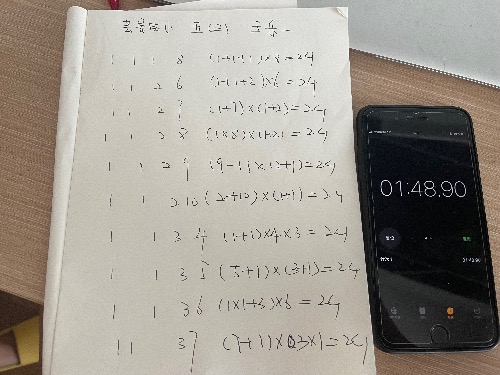 五(2)
1 1 1 8 (1+1+1)×8=24
1 1 2 6 (1+1+2)×6=24
1 1 2 7 (1+7)×(1+2)=24
1 1 2 8 (1×8)×(1+2)=24
1 1 2 9 (9-1)×(2+1)=24
1 1 2 10 (2+10)×(1+1)=24
1 1 3 4 (1+1)×4×3=24
1 1 3 5 (5+1)×(3+1)=24
1 1 3 6 (1×1+3)×6=24
1 1 3 7 (7+1)×3×1=24
01:48.90